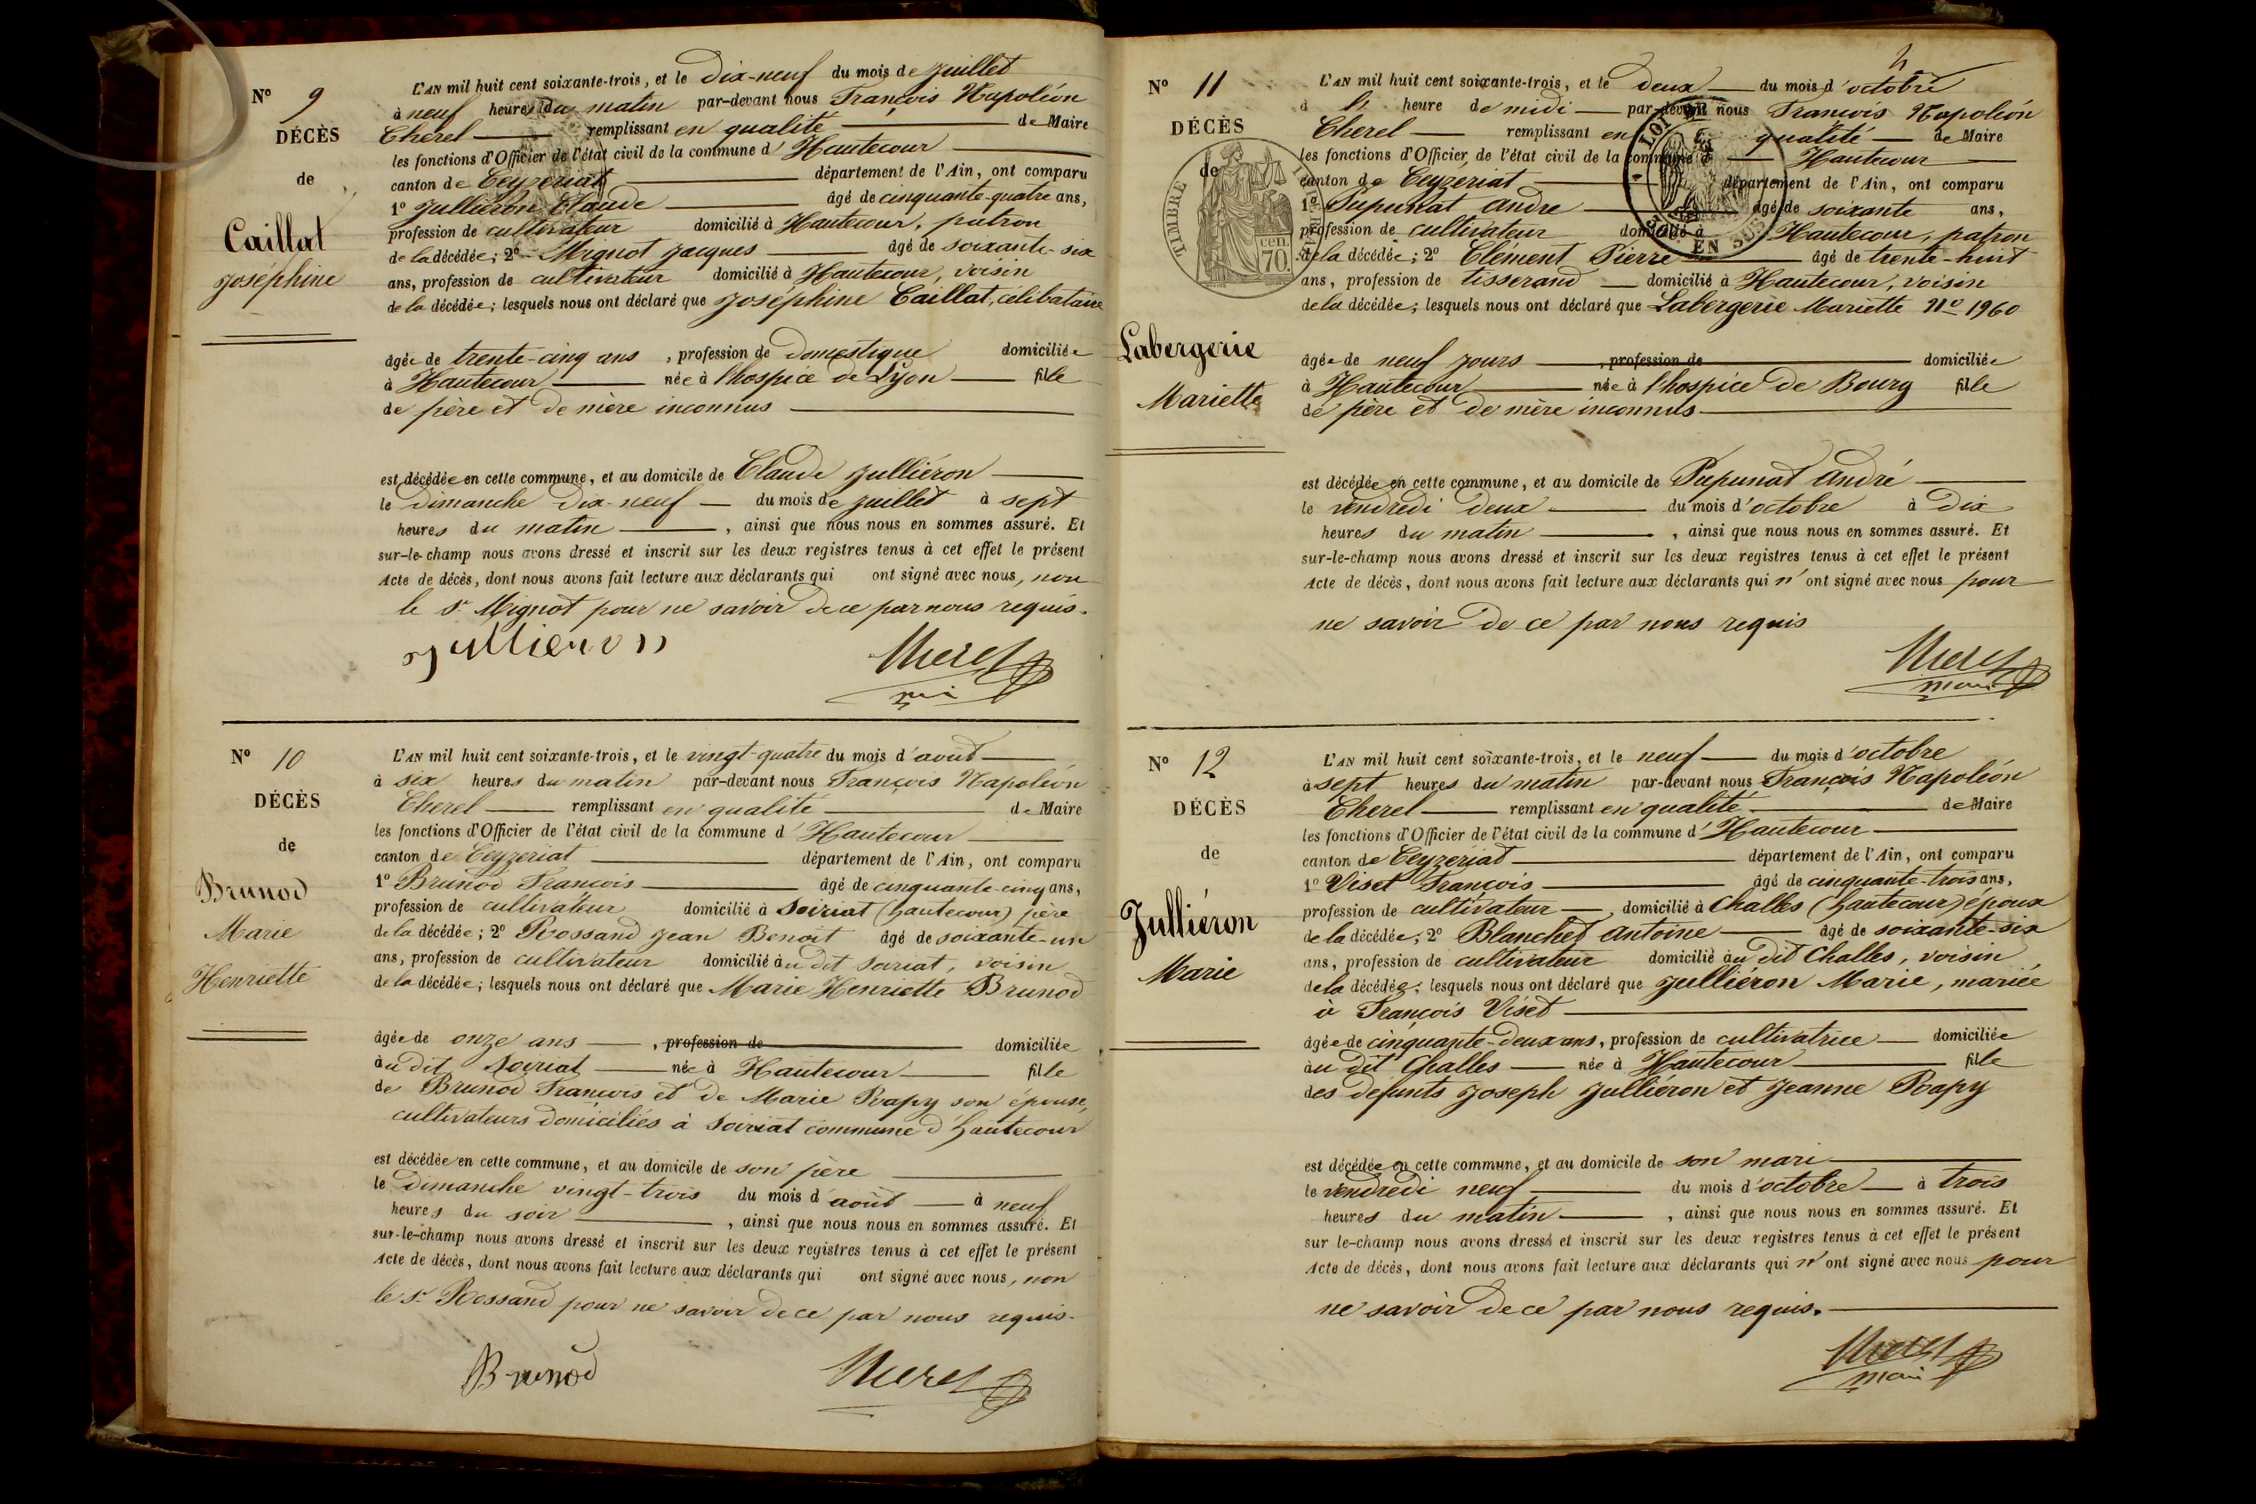 N° 9
DÉCÈS
de
Caillat
Joséphine
L'AN mil huit cent soixante-trois, et le dix-neuf du mois de juillet
à neuf heures du matin par-devant nous François Napoléon
Cherel remplissant en qualité de Maire
les fonctions d'Officier de l'état civil de la commune d'Hautecour
canton de Ceyzeriat département de l'Ain, ont comparu
1° Julliéron Claude âgé de cinquante-quatre ans,
profession de cultivateur domicilié à Hautecour, patron
de la décédée; 2° Mignot Jacques âgé de soixante-six
ans, profession de cultivateur domicilié à Hautecour, voisin
de la décédée; lesquels nous ont déclaré que Joséphine Caillat, célibataire
âgée de trente-cinq ans, profession de domestique domiciliée
à Hautecour née à l'hospice de Lyon fille
de père et de mère inconnus
est décédée en cette commune, et au domicile de Claude Julliéron
le dimanche dix-neuf du mois de juillet à sept
heures du matin, ainsi que nous nous en sommes assuré. Et
sur-le-champ nous avons dressé et inscrit sur les deux registres tenus à cet effet le présent
Acte de décès, dont nous avons fait lecture aux déclarants qui ont signé avec nous, non
le sr Mignot pour ne savoir de ce par nous requis.
Jullieron Cherel
N° 10
DÉCÈS
de
Brunod
Marie
Henriette
L'AN mil huit cent soixante-trois, et le vingt-quatre du mois d'août
à six heures du matin par-devant nous François Napoléon
Cherel remplissant en qualité de Maire
les fonctions d'Officier de l'état civil de la commune d'Hautecour
canton de Ceyzeriat département de l'Ain, ont comparu
1° Brunod François âgé de cinquante-cinq ans,
profession de cultivateur domicilié à Soiriat (hautecour) père
de la décédée; 2° Rossand Jean Benoit âgé de soixante-un
ans, profession de cultivateur domicilié au dit Soriat, voisin
de la décédée; lesquels nous ont déclaré que Marie Henriette Brunod
âgée de onze ans, profession de domiciliée
au dit Soiriat née à Hautecour fille
de Brunod François et de Marie Papy son épouse,
cultivateurs domiciliés à Soiriat commune d'hautecour
est décédée en cette commune, et au domicile de son père
le dimanche vingt-trois du mois d'août à neuf
heures du soir, ainsi que nous nous en sommes assuré. Et
sur-le-champ nous avons dressé et inscrit sur les deux registres tenus à cet effet le présent
Acte de décès, dont nous avons fait lecture aux déclarants qui ont signé avec nous, non
le sr Rossand pour ne savoir de ce par nous requis.
Brunod Cherel
N° 11
DÉCÈS
de
Labergerie
Mariette
TIMBRE
cen. 70.
LOI DE
EN SUS
L'AN mil huit cent soixante-trois, et le deux du mois d'octobre
à heure de midi par-devant nous François Napoléon
Cherel remplissant en qualité de Maire
les fonctions d'Officier de l'état civil de la commune d'Hautecour
canton de Ceyzeriat département de l'Ain, ont comparu
1° Pupunat André âgé de soixante ans,
profession de cultivateur domicilié à Hautecour, patron
de la décédée; 2° Clément Pierre âgé de trente-huit
ans, profession de tisserand domicilié à Hautecour, voisin
de la décédée; lesquels nous ont déclaré que Labergerie Mariette N° 1960
âgée de neuf jours, profession de domiciliée
à Hautecour née à l'hospice de Bourg fille
de père et de mère inconnus
est décédée en cette commune, et au domicile de Pupunat André
le vendredi deux du mois d'octobre à dix
heures du matin, ainsi que nous nous en sommes assuré. Et
sur-le-champ nous avons dressé et inscrit sur les deux registres tenus à cet effet le présent
Acte de décès, dont nous avons fait lecture aux déclarants qui n'ont signé avec nous pour
ne savoir de ce par nous requis
Cherel
maire
N° 12
DÉCÈS
de
Julliéron
Marie
L'AN mil huit cent soixante-trois, et le neuf du mois d'octobre
à sept heures du matin par-devant nous François Napoléon
Cherel remplissant en qualité de Maire
les fonctions d'Officier de l'état civil de la commune d'Hautecour
canton de Ceyzeriat département de l'Ain, ont comparu
1° Viset François âgé de cinquante-trois ans,
profession de cultivateur, domicilié à Challes (hautecour) époux
de la décédée; 2° Blanchet Antoine âgé de soixante-six
ans, profession de cultivateur domicilié au dit Challes, voisin
de la décédée; lesquels nous ont déclaré que Julliéron Marie, mariée
à François Viset
âgée de cinquante-deux ans, profession de cultivatrice domiciliée
au dit Challes née à Hautecour fille
des defunts Joseph Julliéron et Jeanne Papy
est décédée en cette commune, et au domicile de son mari
le vendredi neuf du mois d'octobre à trois
heures du matin, ainsi que nous nous en sommes assuré. Et
sur le-champ nous avons dressé et inscrit sur les deux registres tenus à cet effet le présent
Acte de décès, dont nous avons fait lecture aux déclarants qui n'ont signé avec nous pour
ne savoir de ce par nous requis.
Cherel
maire